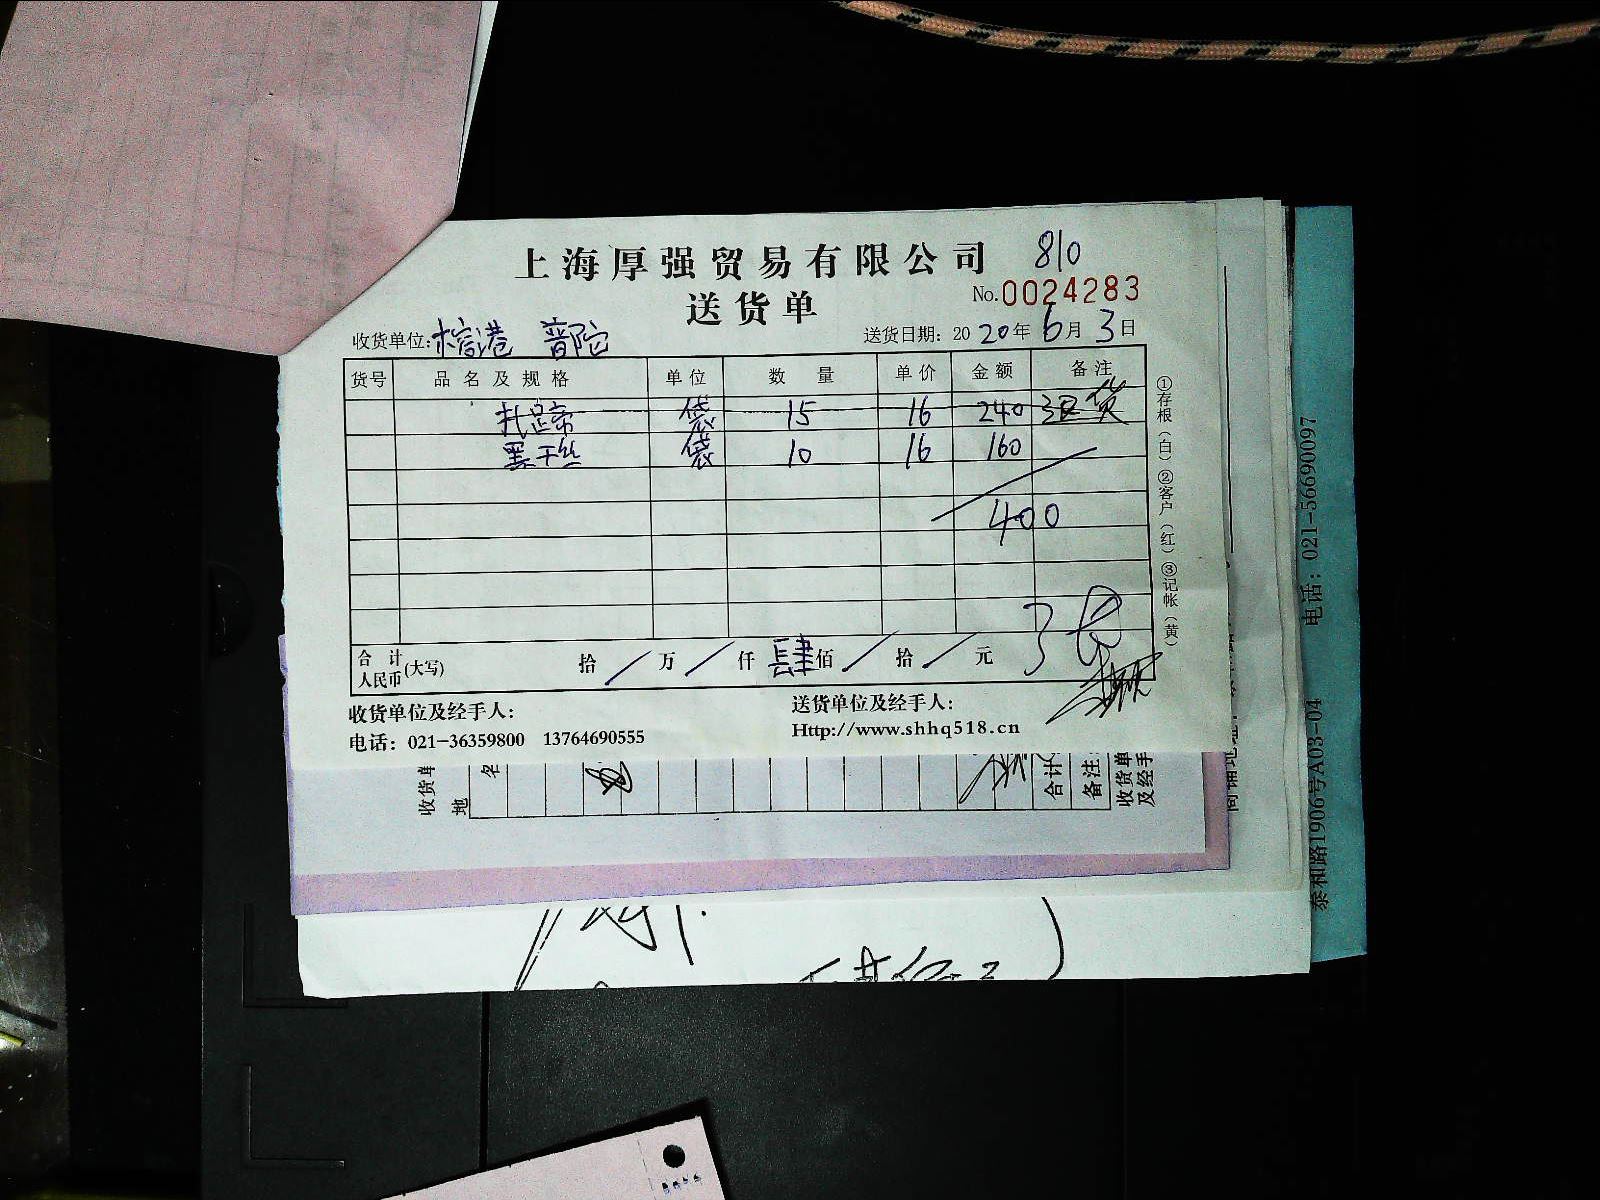 上海厚强贸易有限公司 810
送货单 No.0024283
收货单位: 普陀 送货日期: 2020年6月3日
货号 品名及规格 单位 数量 单价 金额 备注
袋 15 16 240 退货
黑干丝 袋 10 16 160
400
合计 人民币 (大写) 拾 / 万 / 仟 肆 佰 / 拾 / 元
收货单位及经手人: 送货单位及经手人:
电话: 021-36359800 13764690555 Http://www.shhq518.cn
①存根(白) ②客户(红) ③记帐(黄)
收货单
地
名
合计
备注:
收货单
及经手
电话: 021-56690097
泰和路1906号A03-04